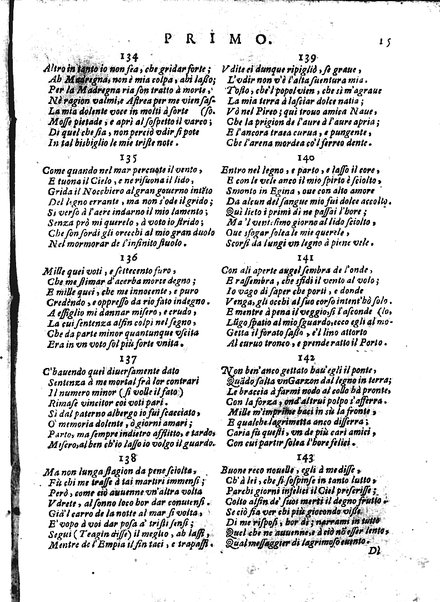 PRIMO. 15
134
Altro in tanto io non fea, che gridar forte;
Ah Madregna, non è mia colpa, ahi lasso;
Per la Madregna ria son tratto à morte,
Nè ragion valmi, e Astrea per me vien sas-
La mia dolente voce in molti à sorte (so.
Mosse pietade, e aprì al sospetto il varco;
Di quel che fia, non perciò vdir si pote
In tal bisbiglio le mie triste note.
135
Come quando nel mar percuote il vento,
E tuona il Cielo, e ne risuona il lido,
Grida il Nocchiero al gran gouerno intẽto
Del legno errante, ma non s'ode il grido;
Si verso à l'aere indarno il mio lamento;
Senza prò mi querelo, à voto io strido;
Che son sordi gli orecchi al mio gran duolo
Nel mormorar de l'infinito stuolo.
136
Mille quei voti, e settecento furo,
Che me stimar d'acerba morte degno;
E mille quei, che me innocente, e puro
Credẽndo, e oppresso da rio fato indegno.
A essiglio mi dannar misero, e crudo,
La cui sentenza alfin colpì nel segno,
Che da parte minor quantunque vscita
Era in vn voto sol più forte vnita.
137
C'bauendo quei diuersamente dato
Sentenza à me mortal frà lor contrari
Il numero minor (si volle il fato)
Rimase vincitor coi voti pari.
Si dal paterno albergo io fui scacciato,
O' memoria dolente, ò giorni amari;
Parto, ma sempre indietro afflitto, e tardo,
Misero, al ben ch'io lasso io volgo il guardo.
138
Ma non lunga stagion da pene sciolta,
Fù chi me trasse à tai martiri immensi;
Però, come ciò auuenne vn'altra volta
Vdrete, al sonno loco hor dar conuensi.
Già l carro de la notte al mar si volta,
E' vopo à voi dar posa à tristi sensi;
Seguì (Teagin disse) il meglio, ah lassi,
Mentre de l'Empia il fin taci, e trapassi.
139
Vdite ei dunque ripigliò, se graue,
L'vdir non v'è l'alta suentura mia.
Tosto, che'l popol vien, che sì m'agraue
La mia terra à lasciar dolce natia;
Vò nel Pireo; qui trouo amica Naue,
Che la prigion de l'aure à l'aure apria;
E l'ancora traea curua, e pungente,
Che l'arena mordea co'l ferreo dente.
140
Entro nel legno, e parto, e lasso il core,
E con le vele anco il mio spirto è sciolto,
Smonto in Egina, oue con alto amore
Da alcun del sangue mio fui dolce accolto.
Qui lieto i primi dì ne passai l'hore;
Ma'l ventesimo giorno al lido sciolto,
Oue sfogar solea le mie querele,
Scorsi da lungi vn legno à piene vele.
141
Con ali aperte augel sembra de l'onde,
E rassembra, che sfidi il vento al volo;
Io vago di saper che porti, e donde
Venga, gli occhi al suo corso intent'hò solo.
E mentre à pena il veggio, si l'asconde (lo,
Lũgo spatio al mio sguardo, ecco egli al mo-
Getta il forato sasso, e'l lino attorto
Al curuo tronco, e prende al fin il Porto.
142
Non ben'anco gettato hau'egli il ponte,
Quãdo salta vn Garzon dal legno in terra;
Le braccia à farmi nodo al collo hà pronte,
Con la forza, ond'altrui polpo s'afferra.
Mille m'imprime baci in sù la fronte,
E qualche lagrimetta anco disserra;
Caria fù questi, vn de più cari amici,
Con cui partir solea l'hore felici.
143
Buone reco nouelle, egli à me disse,
Ch'à lei, che si sospinse in tanto lutto,
Parchi giorni infelici il Ciel prescrisse;
Colto al fin de' suoi merti il degno frutto
Se ciò fia ver chi più giocondo visse
Di me rispost, hor dì; narrami in tutto
Quel che ne auuenne, e à ciò nõ esser lento,
Qual messaggier di lagrimoso euento.
Di